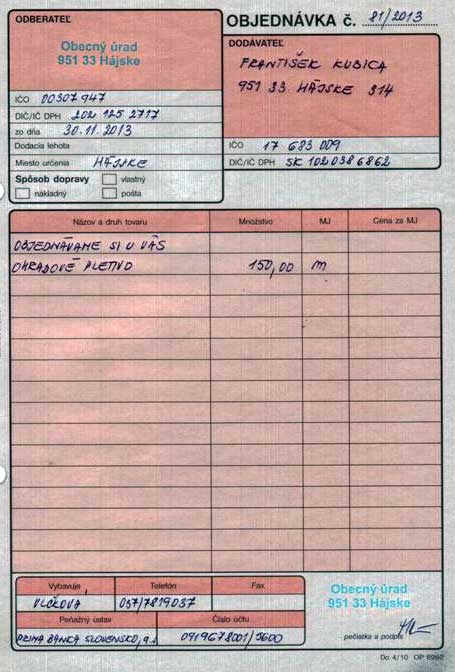 ODBERATEĽ
Obecný úrad
951 33 Hájske
IČO 00307947
DIČ/IČ DPH 202 125 2717
zo dňa 30.11.2013
Dodacia lehota
Miesto určenia HÁJSKE
Spôsob dopravy vlastný
nákladný pošta
OBJEDNÁVKA č. 81/2013
DODÁVATEĽ
FRANTIŠEK KUBICA
951 33 HÁJSKE 314
IČO 17 683 009
DIČ/IČ DPH SK 1020386862
Názov a druh tovaru Množstvo MJ Cena za MJ
OBJEDNÁVAME SI U VÁS
OHRADOVÉ PLETIVO 150,00 m
Vybavuje Telefón Fax
VLČKOVÁ 037/7819037
Peňažný ústav Číslo účtu
PRIMA BANKA SLOVENSKO, a.s. 0919678001/5600
Obecný úrad
951 33 Hájske
pečiatka a podpis
Do 4/10 OP 6992